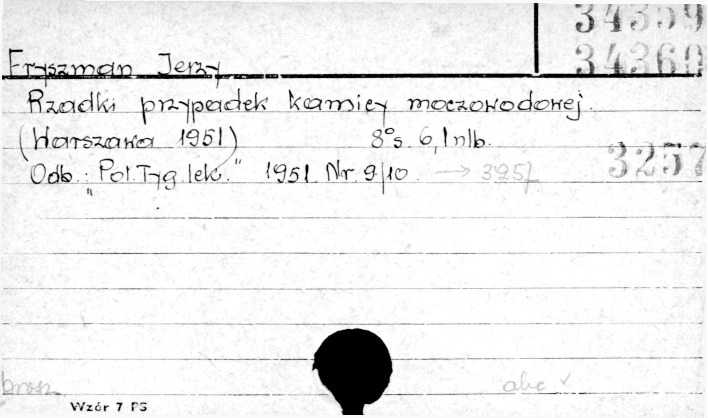 34359
34360
Fryszman Jerzy
Rzadki przypadek kamicy moczowodowej.
(Warszawa 1951) 8°s. 6, 1 nlb.
Odb.: "Pol. Tyg. lek." 1951. Nr. 9/10. → 3257
3257
brosz
abc ✓
Wzór 7 PS